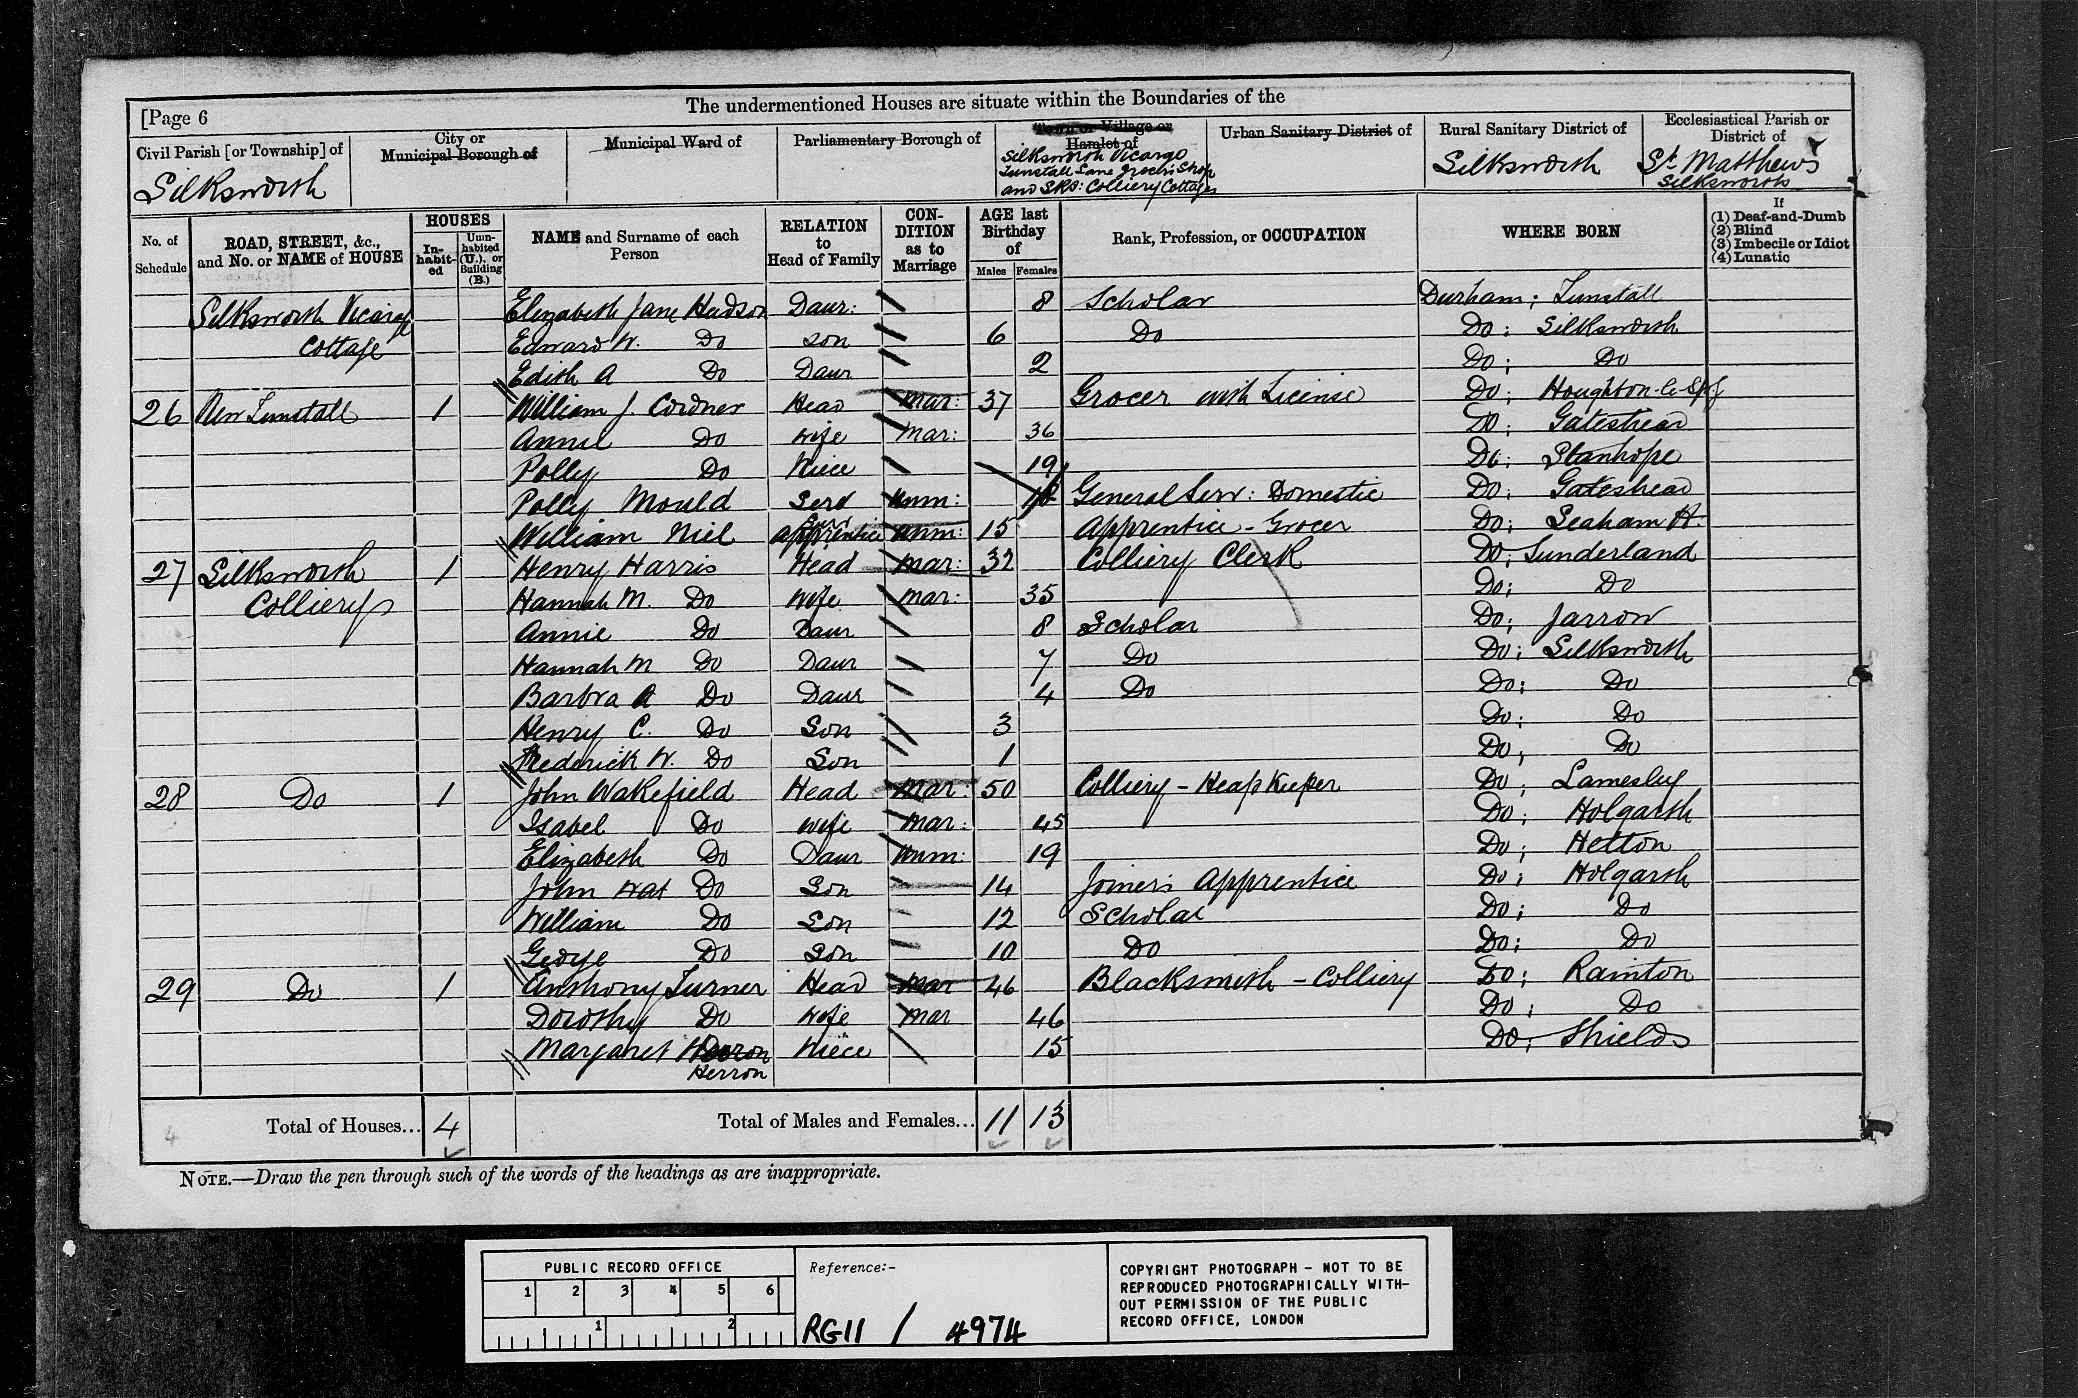 The undermentioned Houses are situate within the Boundaries of the
[Page 6
Civil Parish [or Township] of
Silksworth
City or
Municipal Borough of
Municipal Ward of
Parliamentary Borough of
Town or Village or
Hamlet of
Silksworth Vicarge
Tunstall Lane Grocers Shop
and Colliery Cottages
Urban Sanitary District of
Rural Sanitary District of
Silksworth
Ecclesiastical Parish or
District of
St. Matthews
Silksworth
No. of
Schedule
ROAD, STREET, &c.,
and No. or NAME of HOUSE
HOUSES
In-
habit-
ed
Unin-
habited
(U.), or
Building
(B.)
NAME and Surname of each
Person
RELATION
to
Head of Family
CON-
DITION
as to
Marriage
AGE last
Birthday
of
Males Females
Rank, Profession, or OCCUPATION
WHERE BORN
If
(1) Deaf-and-Dumb
(2) Blind
(3) Imbecile or Idiot
(4) Lunatic
Silksworth Vicarage Elizabeth Jane Hudson Daur: 8 Scholar Durham; Tunstall
Cottage Edward W. Do Son 6 Do Do; Silksworth
Edith A Do Daur 2 Do; Do
26 New Tunstall 1 William J. Cordner Head Mar: 37 Grocer with License Do; Houghton-le-Spg
Annie Do Wife Mar: 36 Do; Gateshead
Polly Do Niece 19 Do; Stanhope
Polly Mould Serv Unm: 18 General Serv: Domestic Do; Gateshead
William Niel Serv Apprentice Unm: 15 Apprentice - Grocer Do; Seaham H.
27 Silksworth 1 Henry Harris Head Mar: 32 Colliery Clerk Do; Sunderland
Colliery Hannah M. Do Wife Mar: 35 Do; Do
Annie Do Daur 8 Scholar Do; Jarrow
Hannah M Do Daur 7 Do Do; Silksworth
Barbra A Do Daur 4 Do Do; Do
Henry C. Do Son 3 Do; Do
Frederick W. Do Son 1 Do; Do
28 Do 1 John Wakefield Head Mar: 50 Colliery - Heap Keeper Do; Lamesley
Isabel Do Wife Mar: 45 Do; Holgarth
Elizabeth Do Daur Unm: 19 Do; Hetton
John Do Son 14 Joiner's Apprentice Do; Holgarth
William Do Son 12 Scholar Do; Do
George Do Son 10 Do Do; Do
29 Do 1 Anthony Turner Head Mar 46 Blacksmith - Colliery Do; Rainton
Dorothy Do Wife Mar 46 Do; Do
Margaret Herron Niece 15 Do; Shields
4 Total of Houses... 4 Total of Males and Females... 11 13
NOTE.—Draw the pen through such of the words of the headings as are inappropriate.
PUBLIC RECORD OFFICE
1 2 3 4 5 6
1 2
Reference:-
RG11 / 4974
COPYRIGHT PHOTOGRAPH - NOT TO BE
REPRODUCED PHOTOGRAPHICALLY WITH-
OUT PERMISSION OF THE PUBLIC
RECORD OFFICE, LONDON